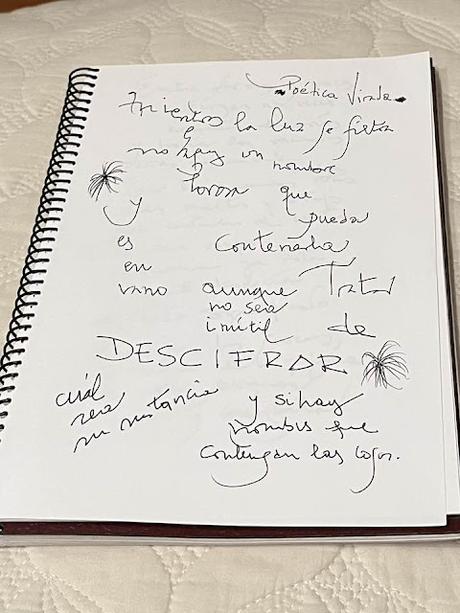 Poética Virada
mientras la luz se filtra
no hay un nombre
que
y pueda
es contenerla
en
vano aunque Tratar
no sea
inútil de
DESCIFRAR
cuál
sea y si hay
su sustancia nombres que
contengan las cosas.